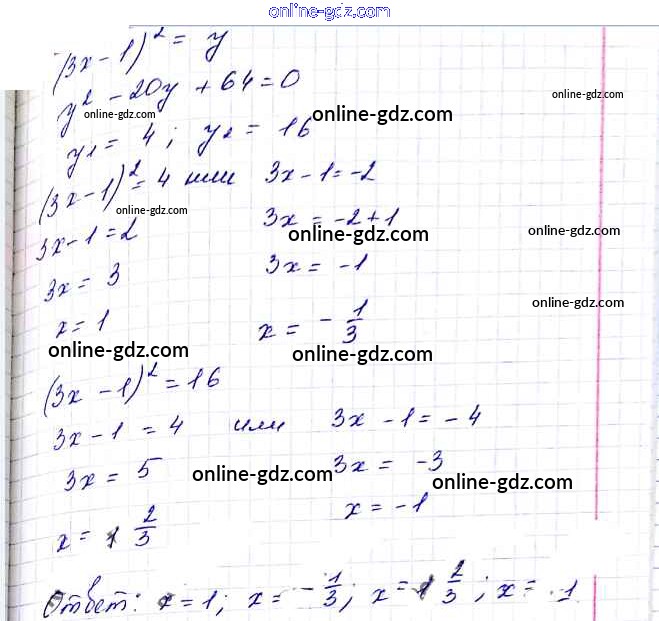 online-gdz.com
(3x-1)² = y
y² - 20y + 64 = 0
online-gdz.com
online-gdz.com
online-gdz.com
y₁ = 4; y₂ = 16
(3x-1)² = 4 или 3x-1=-2
online-gdz.com
3x-1=2 3x = -2+1
online-gdz.com
online-gdz.com
3x = 3 3x = -1
online-gdz.com
x = 1 x = - 1/3
online-gdz.com
online-gdz.com
(3x-1)² = 16
3x-1 = 4 или 3x-1 = -4
3x = 5 3x = -3
online-gdz.com
online-gdz.com
x = 1 2/3 x = -1
Ответ: x=1; x= -1/3; x=1 2/3; x= 1